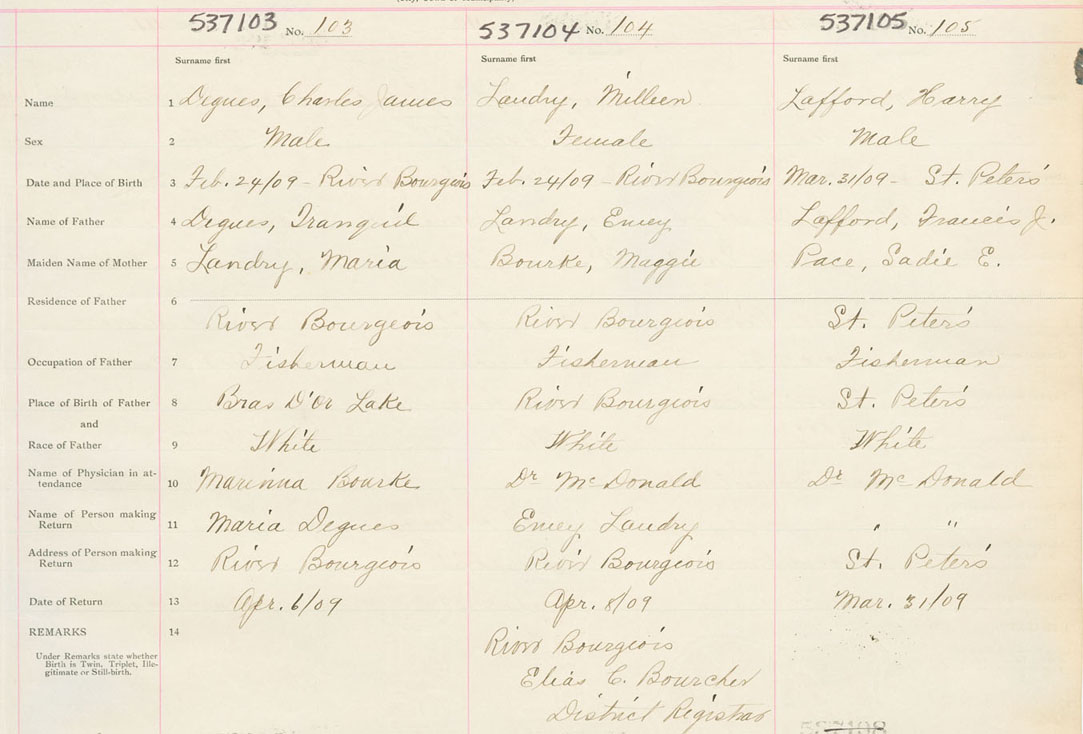 537103 No. 103 537104 No. 104 537105 No. 105
Surname first Surname first Surname first
Name 1 Degues, Charles James Landry, Milleen Lafford, Harry
Sex 2 Male Female Male
Date and Place of Birth 3 Feb. 24/09 - River Bourgeois Feb. 24/09 - River Bourgeois Mar. 31/09 - St. Peter's
Name of Father 4 Degues, Tranquil Landry, Emey Lafford, Francis J.
Maiden Name of Mother 5 Landry, Maria Bourke, Maggie Pace, Sadie E.
Residence of Father 6
River Bourgeois River Bourgeois St. Peter's
Occupation of Father 7 Fisherman Fisherman Fisherman
Place of Birth of Father 8 Bras D'Or Lake River Bourgeois St. Peter's
and
Race of Father 9 White White White
Name of Physician in at-
tendance 10 Marinna Bourke Dr McDonald Dr McDonald
Name of Person making
Return 11 Maria Degues Emey Landry " "
Address of Person making
Return 12 River Bourgeois River Bourgeois St. Peter's
Date of Return 13 Apr. 6/09 Apr. 8/09 Mar. 31/09
REMARKS 14
River Bourgeois
Under Remarks state whether
Birth is Twin, Triplet, Ille-
gitimate or Still-birth.
Elias C. Bourcher
District Registrar